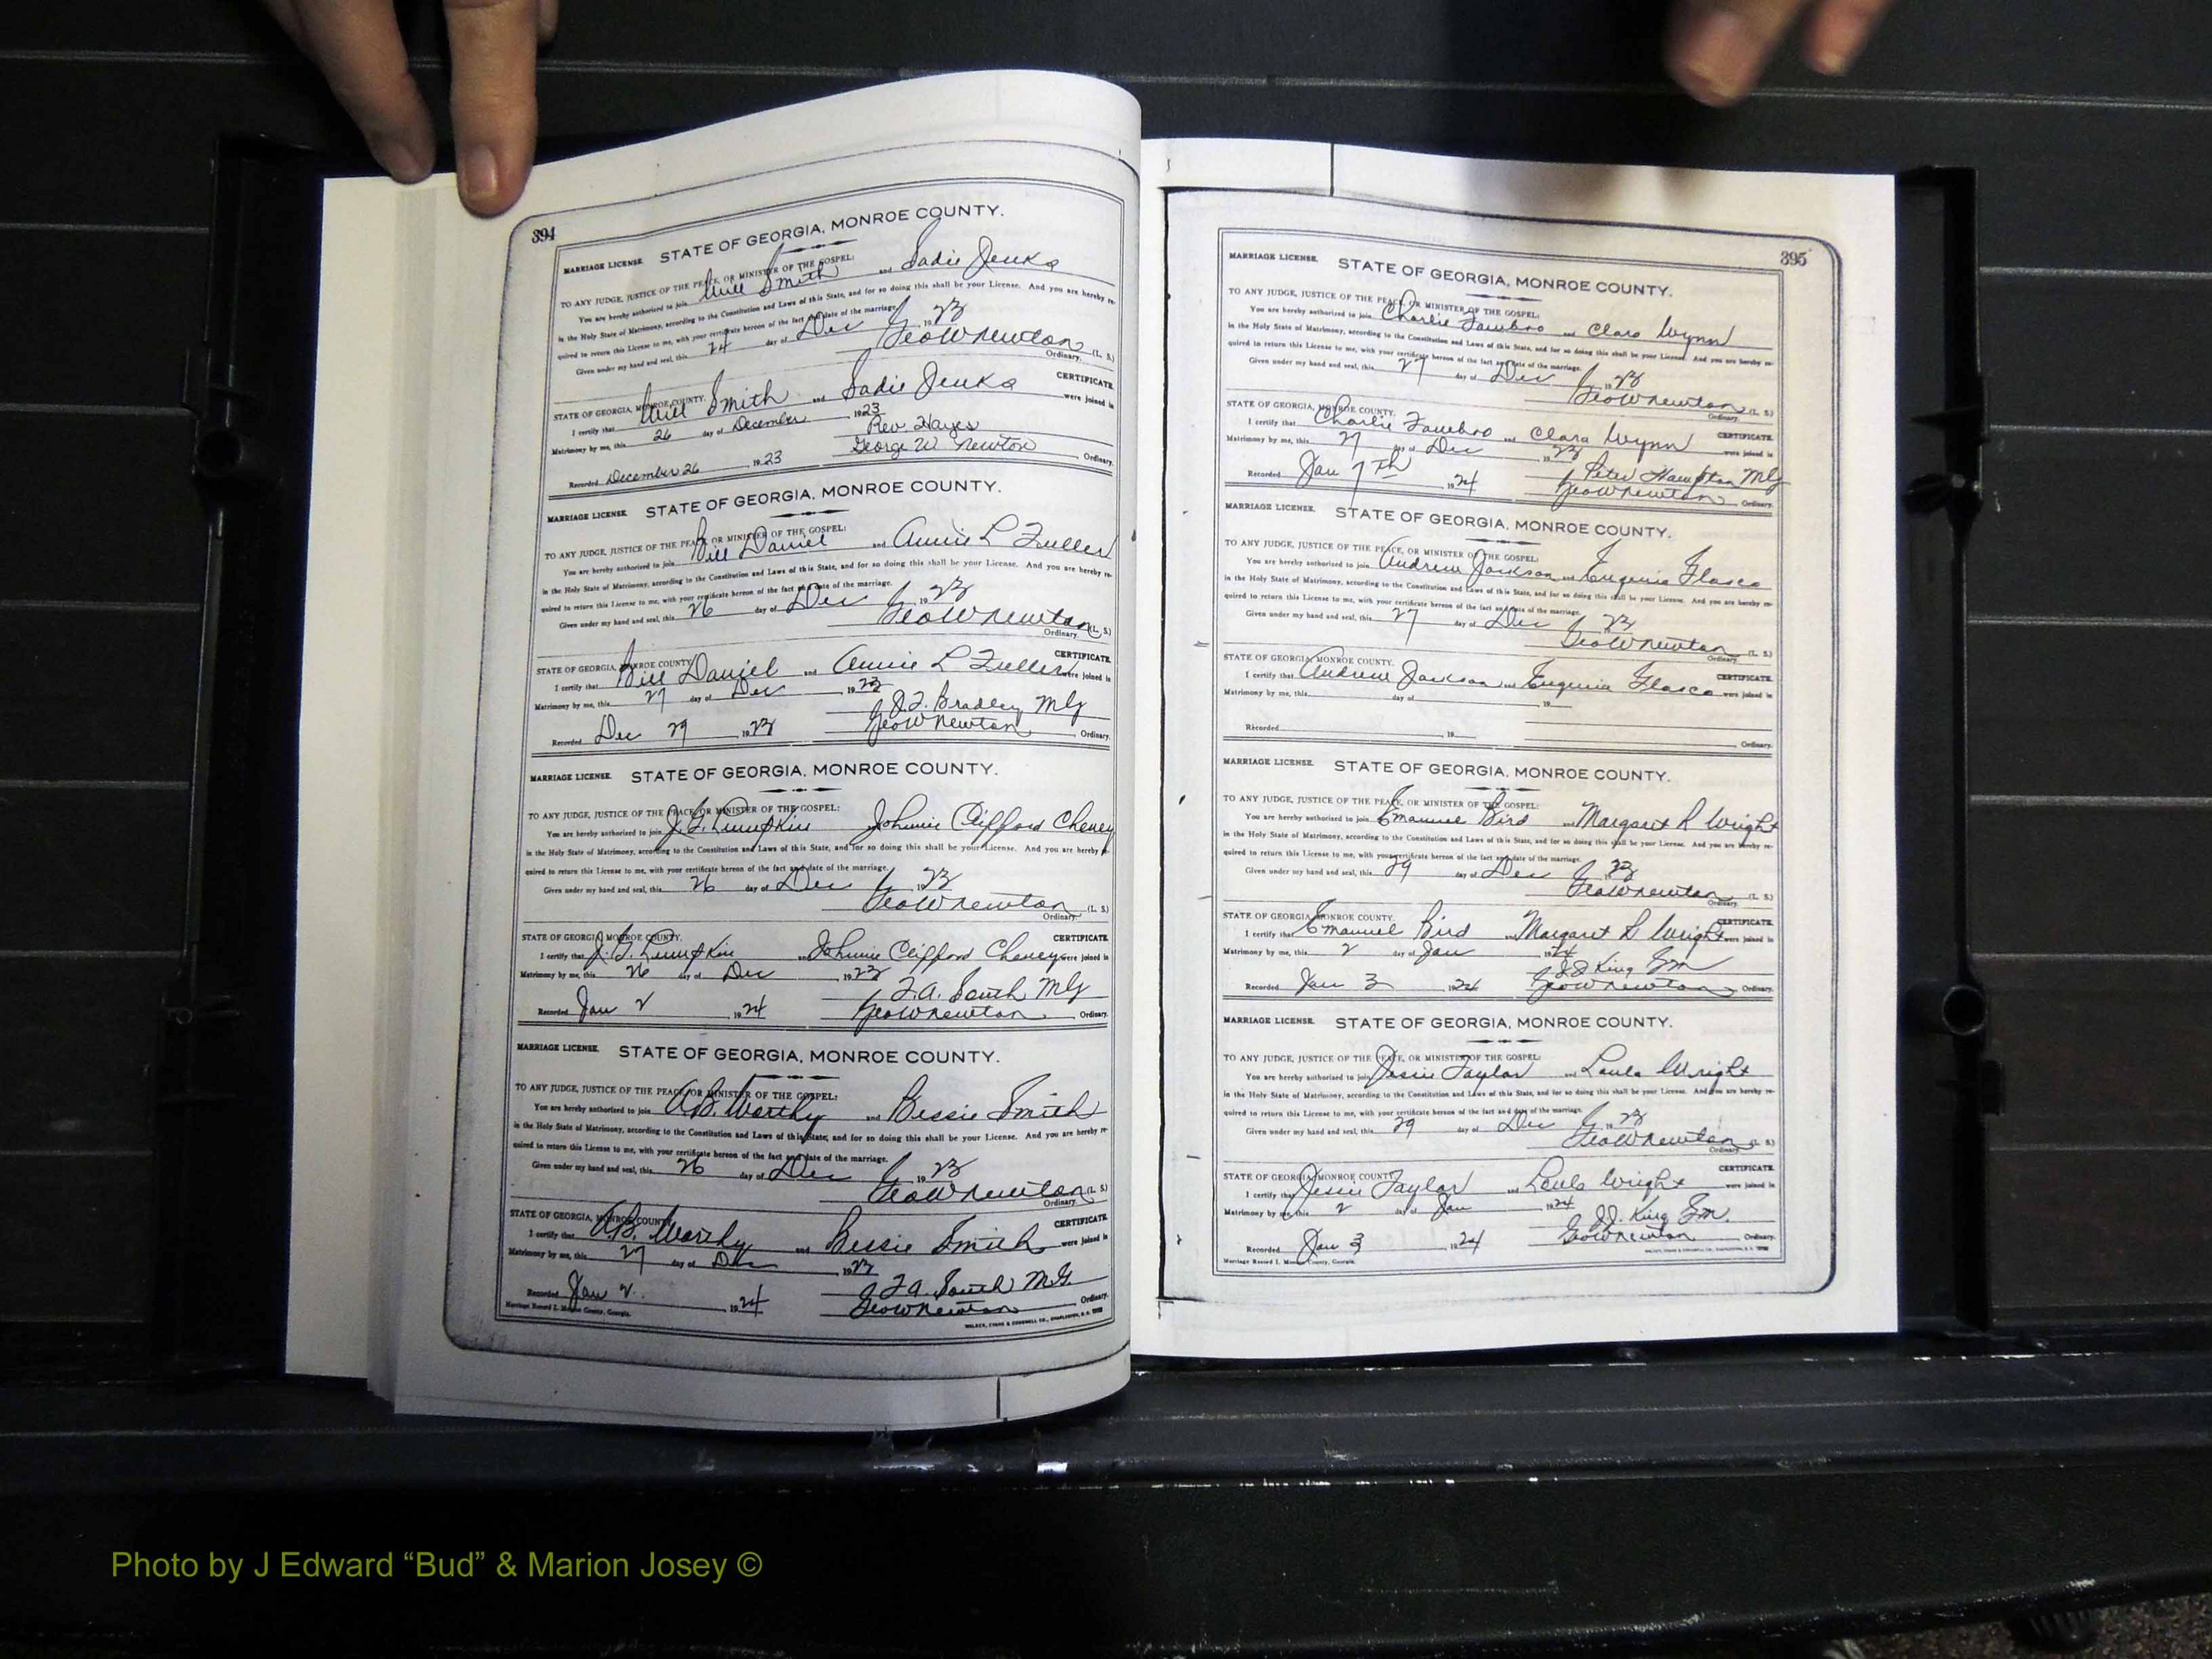 394
STATE OF GEORGIA, MONROE COUNTY.
MARRIAGE LICENSE.
TO ANY JUDGE, JUSTICE OF THE PEACE, OR MINISTER OF THE GOSPEL:
You are hereby authorized to join Will Smith and Sadie Jenks
in the Holy State of Matrimony, according to the Constitution and Laws of this State, and for so doing this shall be your License. And you are hereby re-
quired to return this License to me, with your certificate hereon of the fact and date of the marriage.
Given under my hand and seal, this 24 day of Dec 1923
Geo W Newton (L. S.)
Ordinary.
STATE OF GEORGIA, MONROE COUNTY. CERTIFICATE.
I certify that Will Smith and Sadie Jenks were joined in
Matrimony by me, this 26 day of December 1923
Rev. Hayes
Recorded December 26 1923 George W. Newton Ordinary.
MARRIAGE LICENSE. STATE OF GEORGIA, MONROE COUNTY.
TO ANY JUDGE, JUSTICE OF THE PEACE, OR MINISTER OF THE GOSPEL:
You are hereby authorized to join Bill Daniel and Annie L Fuller
in the Holy State of Matrimony, according to the Constitution and Laws of this State, and for so doing this shall be your License. And you are hereby re-
quired to return this License to me, with your certificate hereon of the fact and date of the marriage.
Given under my hand and seal, this 26 day of Dec 1923
Geo W Newton (L. S.)
Ordinary.
STATE OF GEORGIA, MONROE COUNTY. CERTIFICATE.
I certify that Bill Daniel and Annie L Fuller were joined in
Matrimony by me, this 27 day of Dec 1923
Bradley MG
Recorded Dec 29 1923 Geo W Newton Ordinary.
MARRIAGE LICENSE. STATE OF GEORGIA, MONROE COUNTY.
TO ANY JUDGE, JUSTICE OF THE PEACE, OR MINISTER OF THE GOSPEL:
You are hereby authorized to join Lumpkin Johnnie Clifford Cheney
in the Holy State of Matrimony, according to the Constitution and Laws of this State, and for so doing this shall be your License. And you are hereby re-
quired to return this License to me, with your certificate hereon of the fact and date of the marriage.
Given under my hand and seal, this 26 day of Dec 1923
Geo W Newton (L. S.)
Ordinary.
STATE OF GEORGIA, MONROE COUNTY. CERTIFICATE.
I certify that Lumpkin and Johnnie Clifford Cheney were joined in
Matrimony by me, this 26 day of Dec 1923
South MG
Recorded Jan 2 1924 Geo W Newton Ordinary.
MARRIAGE LICENSE. STATE OF GEORGIA, MONROE COUNTY.
TO ANY JUDGE, JUSTICE OF THE PEACE, OR MINISTER OF THE GOSPEL:
You are hereby authorized to join A.B. Worthy and Bessie Smith
in the Holy State of Matrimony, according to the Constitution and Laws of this State, and for so doing this shall be your License. And you are hereby re-
quired to return this License to me, with your certificate hereon of the fact and date of the marriage.
Given under my hand and seal, this 26 day of Dec 1923
Geo W Newton (L. S.)
Ordinary.
STATE OF GEORGIA, MONROE COUNTY. CERTIFICATE.
I certify that A.B. Worthy and Bessie Smith were joined in
Matrimony by me, this 27 day of Dec 1923
South MG.
Recorded Jan 2. 1924 Geo W Newton Ordinary.
Marriage Record I. Monroe County, Georgia.
WALKER, EVANS & COGSWELL CO., CHARLESTON, S. C.
395
MARRIAGE LICENSE. STATE OF GEORGIA, MONROE COUNTY.
TO ANY JUDGE, JUSTICE OF THE PEACE, OR MINISTER OF THE GOSPEL:
You are hereby authorized to join Charlie Fambro and Clara Wynn
in the Holy State of Matrimony, according to the Constitution and Laws of this State, and for so doing this shall be your License. And you are hereby re-
quired to return this License to me, with your certificate hereon of the fact and date of the marriage.
Given under my hand and seal, this 27 day of Dec 1923
Geo W Newton (L. S.)
Ordinary.
STATE OF GEORGIA, MONROE COUNTY. CERTIFICATE.
I certify that Charlie Fambro and Clara Wynn were joined in
Matrimony by me, this 27 day of Dec 1923
Peter Hampton MG
Recorded Jan 7th 1924 Geo W Newton Ordinary.
MARRIAGE LICENSE. STATE OF GEORGIA, MONROE COUNTY.
TO ANY JUDGE, JUSTICE OF THE PEACE, OR MINISTER OF THE GOSPEL:
You are hereby authorized to join Andrew Jackson and Eugenia Glasco
in the Holy State of Matrimony, according to the Constitution and Laws of this State, and for so doing this shall be your License. And you are hereby re-
quired to return this License to me, with your certificate hereon of the fact and date of the marriage.
Given under my hand and seal, this 27 day of Dec 23
Geo W Newton (L. S.)
Ordinary.
STATE OF GEORGIA, MONROE COUNTY. CERTIFICATE.
I certify that Andrew Jackson and Eugenia Glasco were joined in
Matrimony by me, this day of 19
Recorded 19 Ordinary.
MARRIAGE LICENSE. STATE OF GEORGIA, MONROE COUNTY.
TO ANY JUDGE, JUSTICE OF THE PEACE, OR MINISTER OF THE GOSPEL:
You are hereby authorized to join Emanuel Bird and Margaret R Wright
in the Holy State of Matrimony, according to the Constitution and Laws of this State, and for so doing this shall be your License. And you are hereby re-
quired to return this License to me, with your certificate hereon of the fact and date of the marriage.
Given under my hand and seal, this 29 day of Dec 23
Geo W Newton (L. S.)
Ordinary.
STATE OF GEORGIA, MONROE COUNTY. CERTIFICATE.
I certify that Emanuel Bird and Margaret R Wright were joined in
Matrimony by me, this 2 day of Jan 1924
J.J. King
Recorded Jan 3 1924 Geo W Newton Ordinary.
MARRIAGE LICENSE. STATE OF GEORGIA, MONROE COUNTY.
TO ANY JUDGE, JUSTICE OF THE PEACE, OR MINISTER OF THE GOSPEL:
You are hereby authorized to join Jessie Taylor and Leula Wright
in the Holy State of Matrimony, according to the Constitution and Laws of this State, and for so doing this shall be your License. And you are hereby re-
quired to return this License to me, with your certificate hereon of the fact and date of the marriage.
Given under my hand and seal, this 29 day of Dec 1923
Geo W Newton (L. S.)
Ordinary.
STATE OF GEORGIA, MONROE COUNTY. CERTIFICATE.
I certify that Jessie Taylor and Leula Wright were joined in
Matrimony by me, this 2 day of Jan 1924
J.J. King
Recorded Jan 3 1924 Geo W Newton Ordinary.
Marriage Record I. Monroe County, Georgia.
WALKER, EVANS & COGSWELL CO., CHARLESTON, S. C.
Photo by J Edward “Bud” & Marion Josey ©